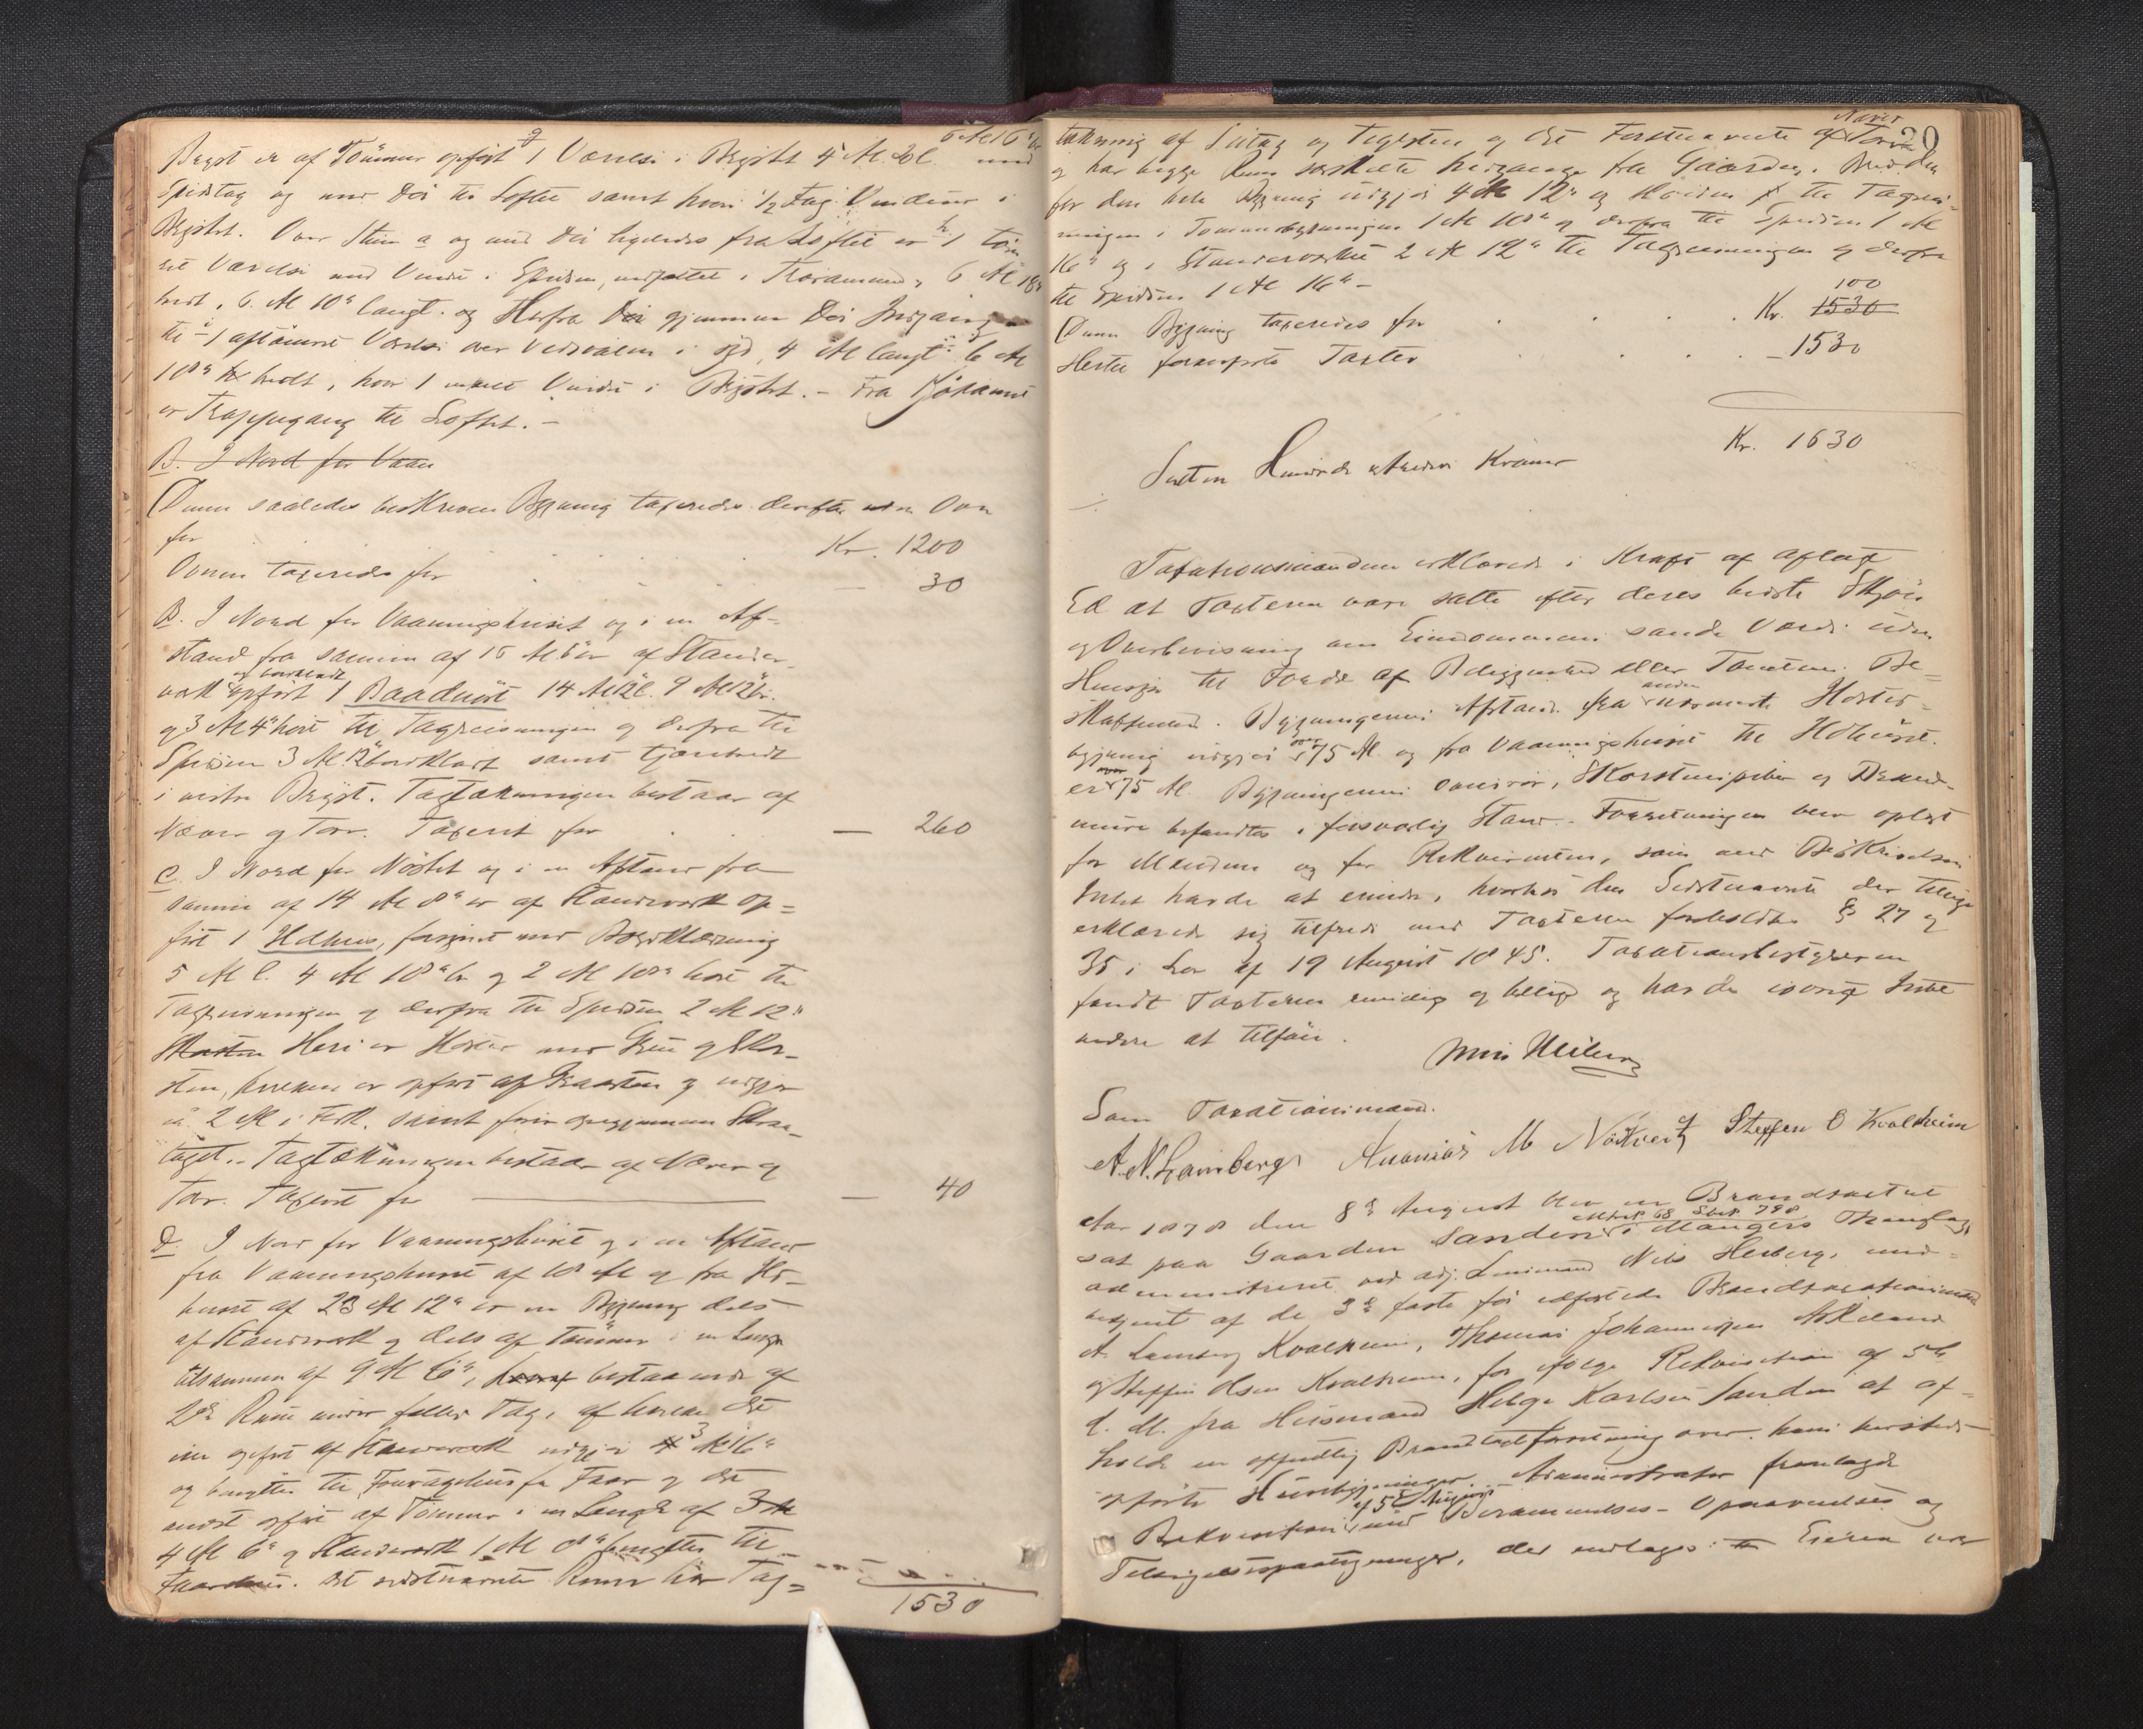 Bryst er af Tømmer opført g 1 Værelse i Brystet 5 Al. 2 l. 6 Al 6" br. med
Spidstag og med Dør til Loftet samt hvori 1/2 Fag Vinduer i
Brystet. Over Stuen a og med Dør ligeledes fra Loftet er h 1 tøm
ret Værelse med Vindu i Spidsen, 6 Al 18"
bredt, 6 Al 10" langt og Herfra Dør gjennem Dør Indgang
til 1 aftømret Værelse over i syd, 4 Al langt 6 Al
18" bredt, hvor 1 Vindu i Brystet. – Fra Kjøkkenet
er Trappegang til Loftet. –
B. I Nord for Vaan
Denne saaledes beskreven Bygning taxeredes derefter uden Ovn
for Kr. 1200
Ovnen taxeredes for — 30
B. I Nord for Vaaningshuset og i en Af-
stand fra samme af 15 Al. er af Stander-
værk og bordklædt opført 1 Baadnøst 14 Al 12" l. 9 Al 12" br.
og 3 Al 4" høit til Tagreisningen og derfra til
Spidsen 3 Al 12" bordklædt samt tjærebredt
i vestre Bryst. Tagtækningen bestaar af
Næver og Torv. Taxeret for — 260
C. I Nord for Nøstet og i en Afstand fra
samme af 14 Al 8" er af Standerværk op=
ført 1 Ildhus, forsynet med Bordklædning
5 Al l. 4 Al 18" br og 2 Al 18" høit til
Tagreisningen og derfra til Spidsen 2 Al 12"
Skorsten Heri er med Grue og Skor-
sten, hvilken er opført af Graasten og udgjør
2 Al i Firk. samt fører igjennem Skraa-
taget. – Tagtækningen bestaar af Næver og
Torv. Taxeret for — 40
D. I Nord for Vaaningshuset og i en Afstand
fra Vaaningshuset af 18 Al og fra Ild-
huset af 23 Al 12" er en Bygning dels
af Standerværk og dels af Tømmer i en Længde
tilsammen af 9 Al 6", bestaaende af
2de Rum under fælles Tag, af hvilke det
ene opført af Standerværk udgjør 3 Al 16"
og benyttes til Fouragehus for Faar og det
andet opført af Tømmer i en Længde af 3 Al
4 Al 6" og Standerværk 1 Al 8" benyttes til
Faarehus. Det sidstnævnte Rum har Tag=
1530
20
tækning af Sutag og Tegelsten og det Førstnævnte af Næver Torv
og har begge Rum særskilte Indgange fra Gaarden. Bredden
for den hele Bygning udgjør 4 Al 12" og Høiden til Tagreis-
ningen i Tømmerbygningen 1 Al 18" og derfra til Spidsen 1 Al
16" og i Standerværket 2 Al 12" til Tagreisningen og derfra
til Spidsen 1 Al 16" –
Denne Bygning taxeredes for Kr. 1530 100
Hertil foranførte Taxter — 1530
Kr. 1630
Taxationsmændene erklærede i Kraft af aflagt
Ed at Taxterne vare satte efter deres bedste Skjøn
og Overbevisning om Eiendommens sande Værdi uden
Hensyn til Fordel af Beliggenhed eller Tomtens Be-
skaffenhed. Bygningernes Afstand fra anden nærmeste Hoved-
bygning udgjør over 75 Al. og fra Vaaningshuset til Ildhuset
er 75 Al. Bygningernes Ovnsrør, Skorstenspiber og Brand-
mure befandtes i forsvarlig Stand. – Forretningen blev oplæst
for Mændene og for Rekvirenten, som ved Beskrivelsen
Intet havde at erindre, hvorhos den Sidstnævnte der tillige
erklærede sig tilfreds med Taxterne forholdt §§ 27 og
35 i Lov af 19 August 1845. Taxationsbestyreren
fandt Taxterne rimelige og billige og havde iøvrigt Intet
videre at tilføie.
Nils Heiberg
Som Taxationsmænd.
A. N. Lamberg Ananias M Nøtvedt Steffen O Kvalheim
Aar 1878 den 8de August blev en Brandtaxt
sat paa Gaarden Sanden Matr. 68 Skrk. 798 i Mangers Thinglag
administreret ved adj. Lensmand Nils Heiberg, med-
betjent af de 3de faste før edfæstede Brandtaxationsmænd
A. Lamberg Kvalheim, Thomas Johannesen Askeland
og Steffen Olsen Kvalheim, for ifølge Rekvisition af 5te
d. M. fra Husmand Helge Karlsen Sanden at af-
holde en offentlig Brandtaxtforretning over hans hersteds
opførte Huusbygninger. Administrator fremlagde
Rekvisition af 5te August med Berammelses- Opnævnelses og
Tilsigelsespaategninger, der indtages: Eieren var